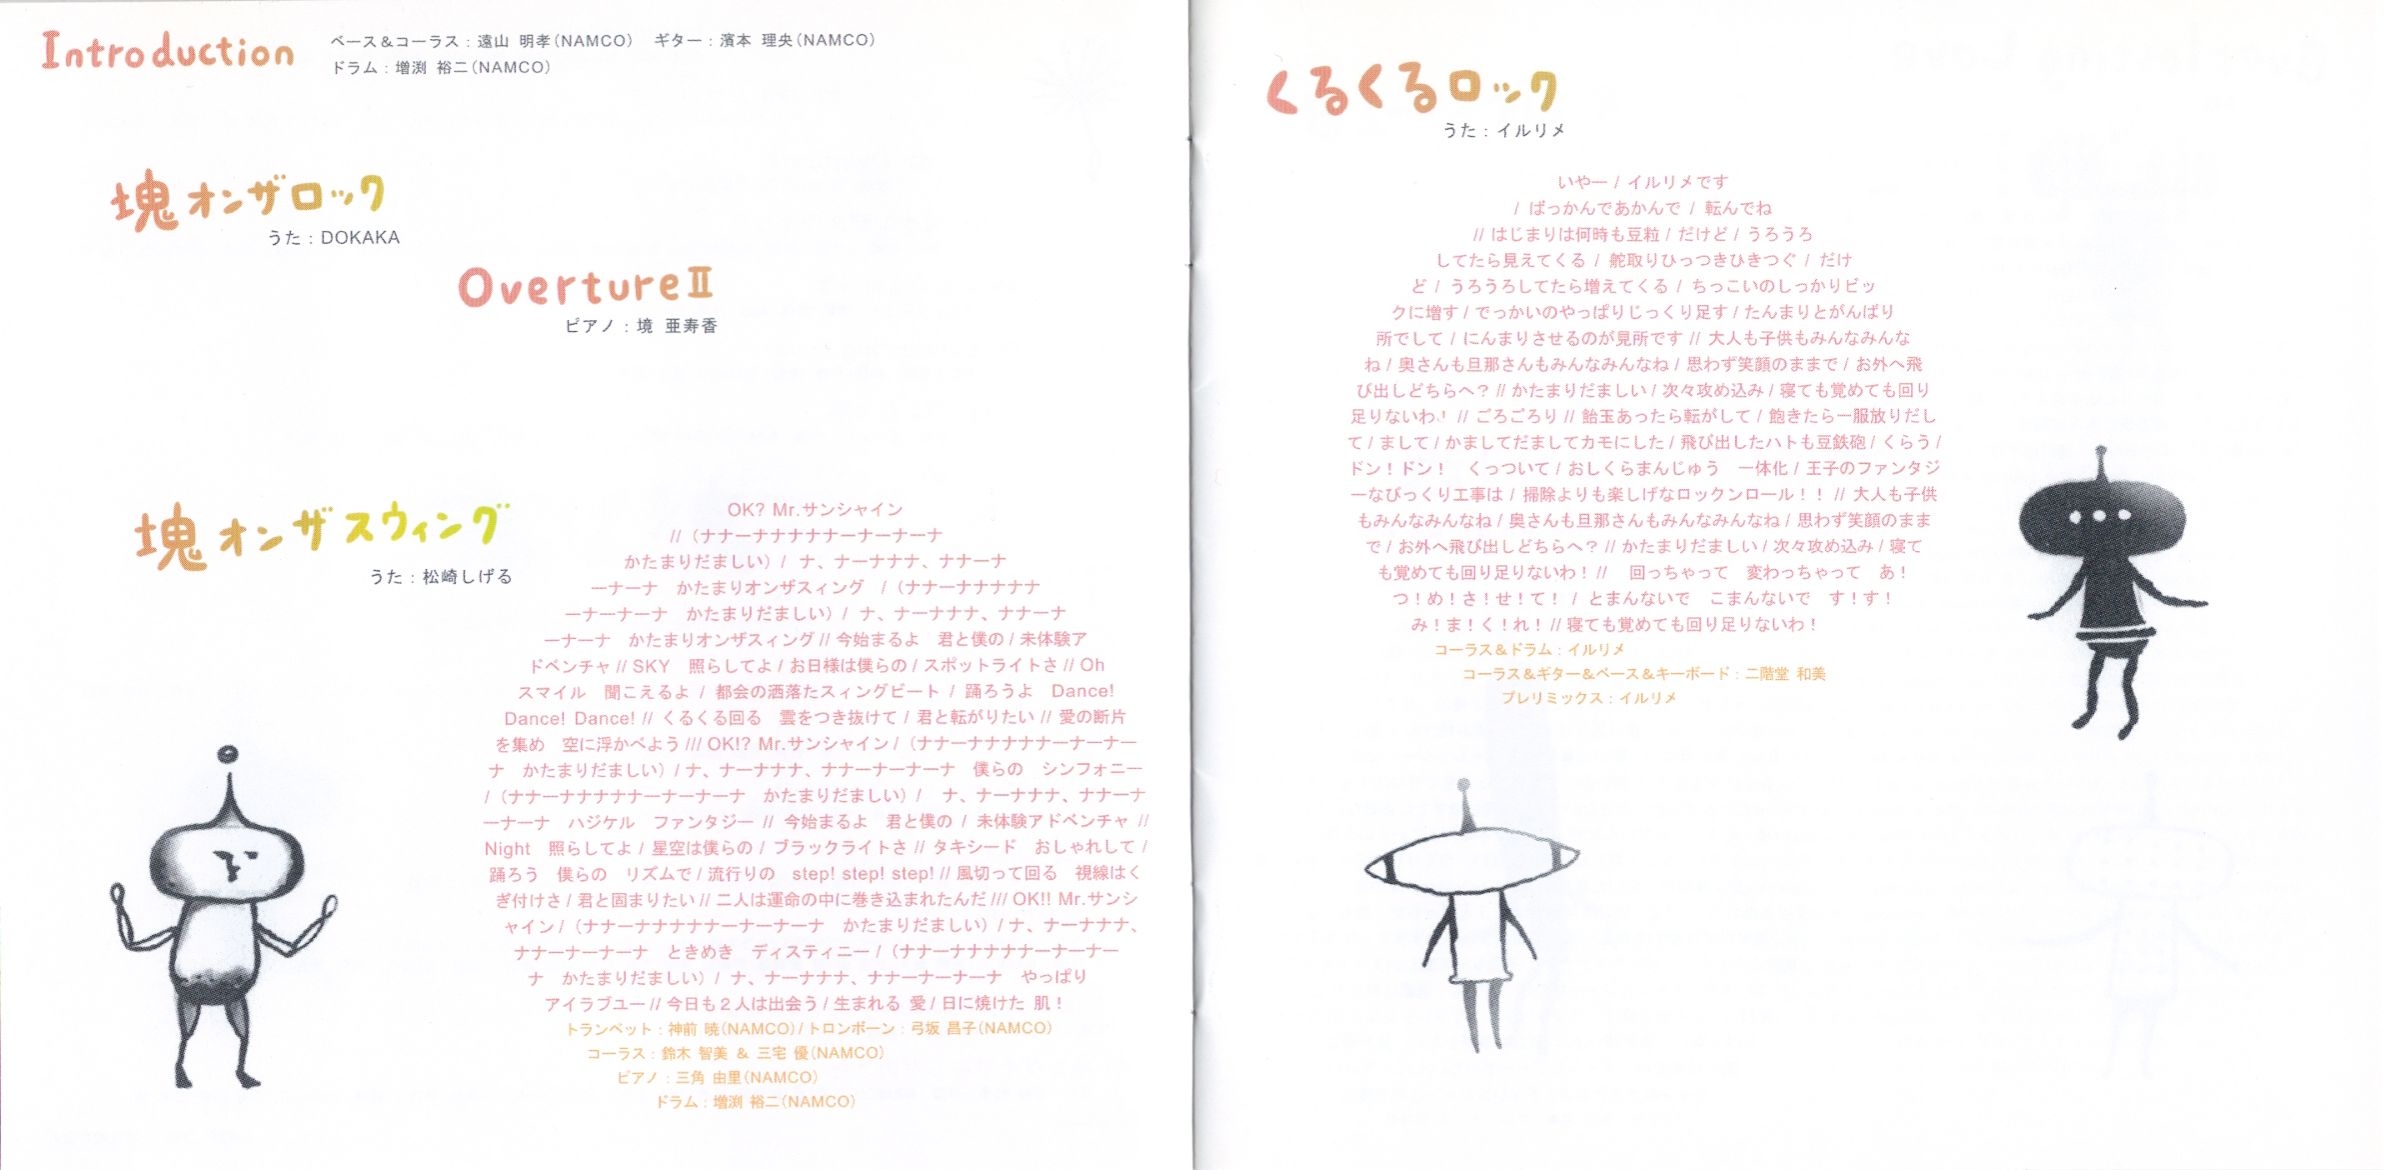 Introduction
ベース＆コーラス：遠山 明孝(NAMCO)　ギター：濱本 理央(NAMCO)
ドラム：増渕 裕二(NAMCO)
塊オンザロック
うた：DOKAKA
OvertureⅡ
ピアノ：境 亜寿香
塊オンザスウィング
うた：松崎しげる
OK? Mr.サンシャイン
//（ナナーナナナナナーナーナーナ
かたまりだましい）/ ナ、ナーナナナ、ナナーナ
ーナーナ　かたまりオンザスィング　/（ナナーナナナナナ
ーナーナーナ　かたまりだましい）/ ナ、ナーナナナ、ナナーナ
ーナーナ　かたまりオンザスィング // 今始まるよ　君と僕の / 未体験ア
ドベンチャ // SKY　照らしてよ / お日様は僕らの / スポットライトさ // Oh
スマイル　聞こえるよ / 都会の洒落たスィングビート / 踊ろうよ　Dance!
Dance! Dance! // くるくる回る　雲をつき抜けて / 君と転がりたい // 愛の断片
を集め　空に浮かべよう /// OK!? Mr.サンシャイン /（ナナーナナナナナーナーナー
ナ　かたまりだましい）/ ナ、ナーナナナ、ナナーナーナーナ　僕らの　シンフォニー
/（ナナーナナナナナーナーナーナ　かたまりだましい）/　ナ、ナーナナナ、ナナーナ
ーナーナ　ハジケル　ファンタジー // 今始まるよ　君と僕の / 未体験アドベンチャ //
Night　照らしてよ / 星空は僕らの / ブラックライトさ // タキシード　おしゃれして /
踊ろう　僕らの　リズムで / 流行りの　step! step! step! // 風切って回る　視線はく
ぎ付けさ / 君と固まりたい // 二人は運命の中に巻き込まれたんだ /// OK!! Mr.サンシ
ャイン /（ナナーナナナナナーナーナーナ　かたまりだましい）/ ナ、ナーナナナ、
ナナーナーナーナ　ときめき　ディスティニー /（ナナーナナナナナーナーナー
ナ　かたまりだましい）/ ナ、ナーナナナ、ナナーナーナーナ　やっぱり
アイラブユー // 今日も２人は出会う / 生まれる 愛 / 日に焼けた 肌！
トランペット：神前 暁(NAMCO) / トロンボーン：弓坂 昌子(NAMCO)
コーラス：鈴木 智美 ＆ 三宅 優(NAMCO)
ピアノ：三角 由里(NAMCO)
ドラム：増渕 裕二(NAMCO)
くるくるロック
うた：イルリメ
いやー / イルリメです
/ ばっかんであかんで / 転んでね
// はじまりは何時も豆粒 / だけど / うろうろ
してたら見えてくる / 舵取りひっつきひきつぐ / だけ
ど / うろうろしてたら増えてくる / ちっこいのしっかりビッ
クに増す / でっかいのやっぱりじっくり足す / たんまりとがんばり
所でして / にんまりさせるのが見所です // 大人も子供もみんなみんな
ね / 奥さんも旦那さんもみんなみんなね / 思わず笑顔のままで / お外へ飛
び出しどちらへ？ // かたまりだましい / 次々攻め込み / 寝ても覚めても回り
足りないわ！ // ごろごろり // 飴玉あったら転がして / 飽きたら一服放りだし
て / まして / かましてだましてカモにした / 飛び出したハトも豆鉄砲 / くらう /
ドン！ドン！　くっついて / おしくらまんじゅう　一体化 / 王子のファンタジ
ーなびっくり工事は / 掃除よりも楽しげなロックンロール！！ // 大人も子供
もみんなみんなね / 奥さんも旦那さんもみんなみんなね / 思わず笑顔のまま
で / お外へ飛び出しどちらへ？ // かたまりだましい / 次々攻め込み / 寝て
も覚めても回り足りないわ！ //　回っちゃって　変わっちゃって　あ！
つ！め！さ！せ！て！ / とまんないで　こまんないで　す！す！
み！ま！く！れ！ // 寝ても覚めても回り足りないわ！
コーラス＆ドラム：イルリメ
コーラス＆ギター＆ベース＆キーボード：二階堂 和美
プレリミックス：イルリメ